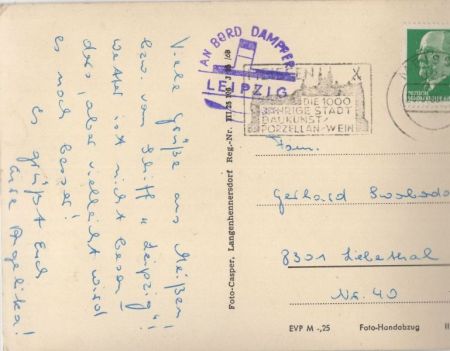 Viele Grüße aus Meißen!
bzw. vom Schiff "Leipzig"!
Wetter ist nicht besonders
doll, aber vielleicht wird
es noch besser!
Es grüßt Euch
Eure Angelika!
Foto-Casper, Langenhennersdorf Reg.-Nr. III/25
AN BORD DAMPFER
LEIPZIG
DIE 1000
JÄHRIGE STADT
BAUKUNST/
PORZELLAN/WEIN
Fam.
Gerhard Swoboda
8301 Liebethal
Nr. 40
EVP M -,25 Foto-Handabzug